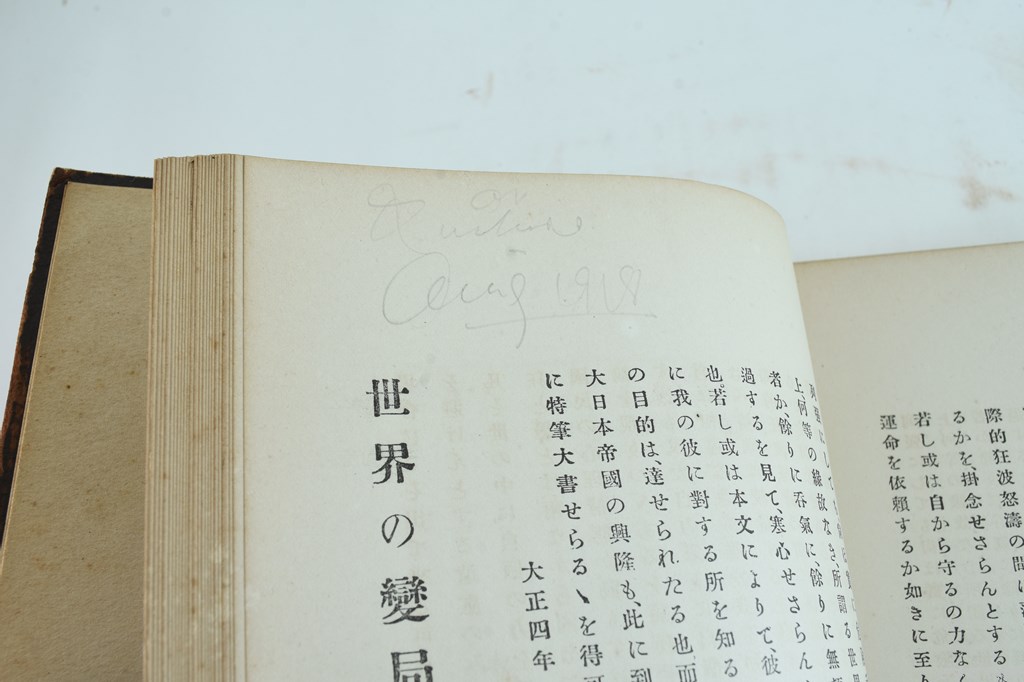 Aug 1918
際的狂波怒濤の間に
るかを、掛念せさらんとする
若し或は自から守るの力なく
運命を依頼するか如きに至り
上、何等の緣故なき、所謂る世界
者か、餘りに呑氣に、餘りに無
過するを見て、寒心せさらん
也。若し或は本文によりて、彼
に我の彼に對する所を知る
の目的は、達せられたる也。而
大日本帝國の興隆も、此に到
に特筆大書せらるゝを得可
大正四年
世界の變局